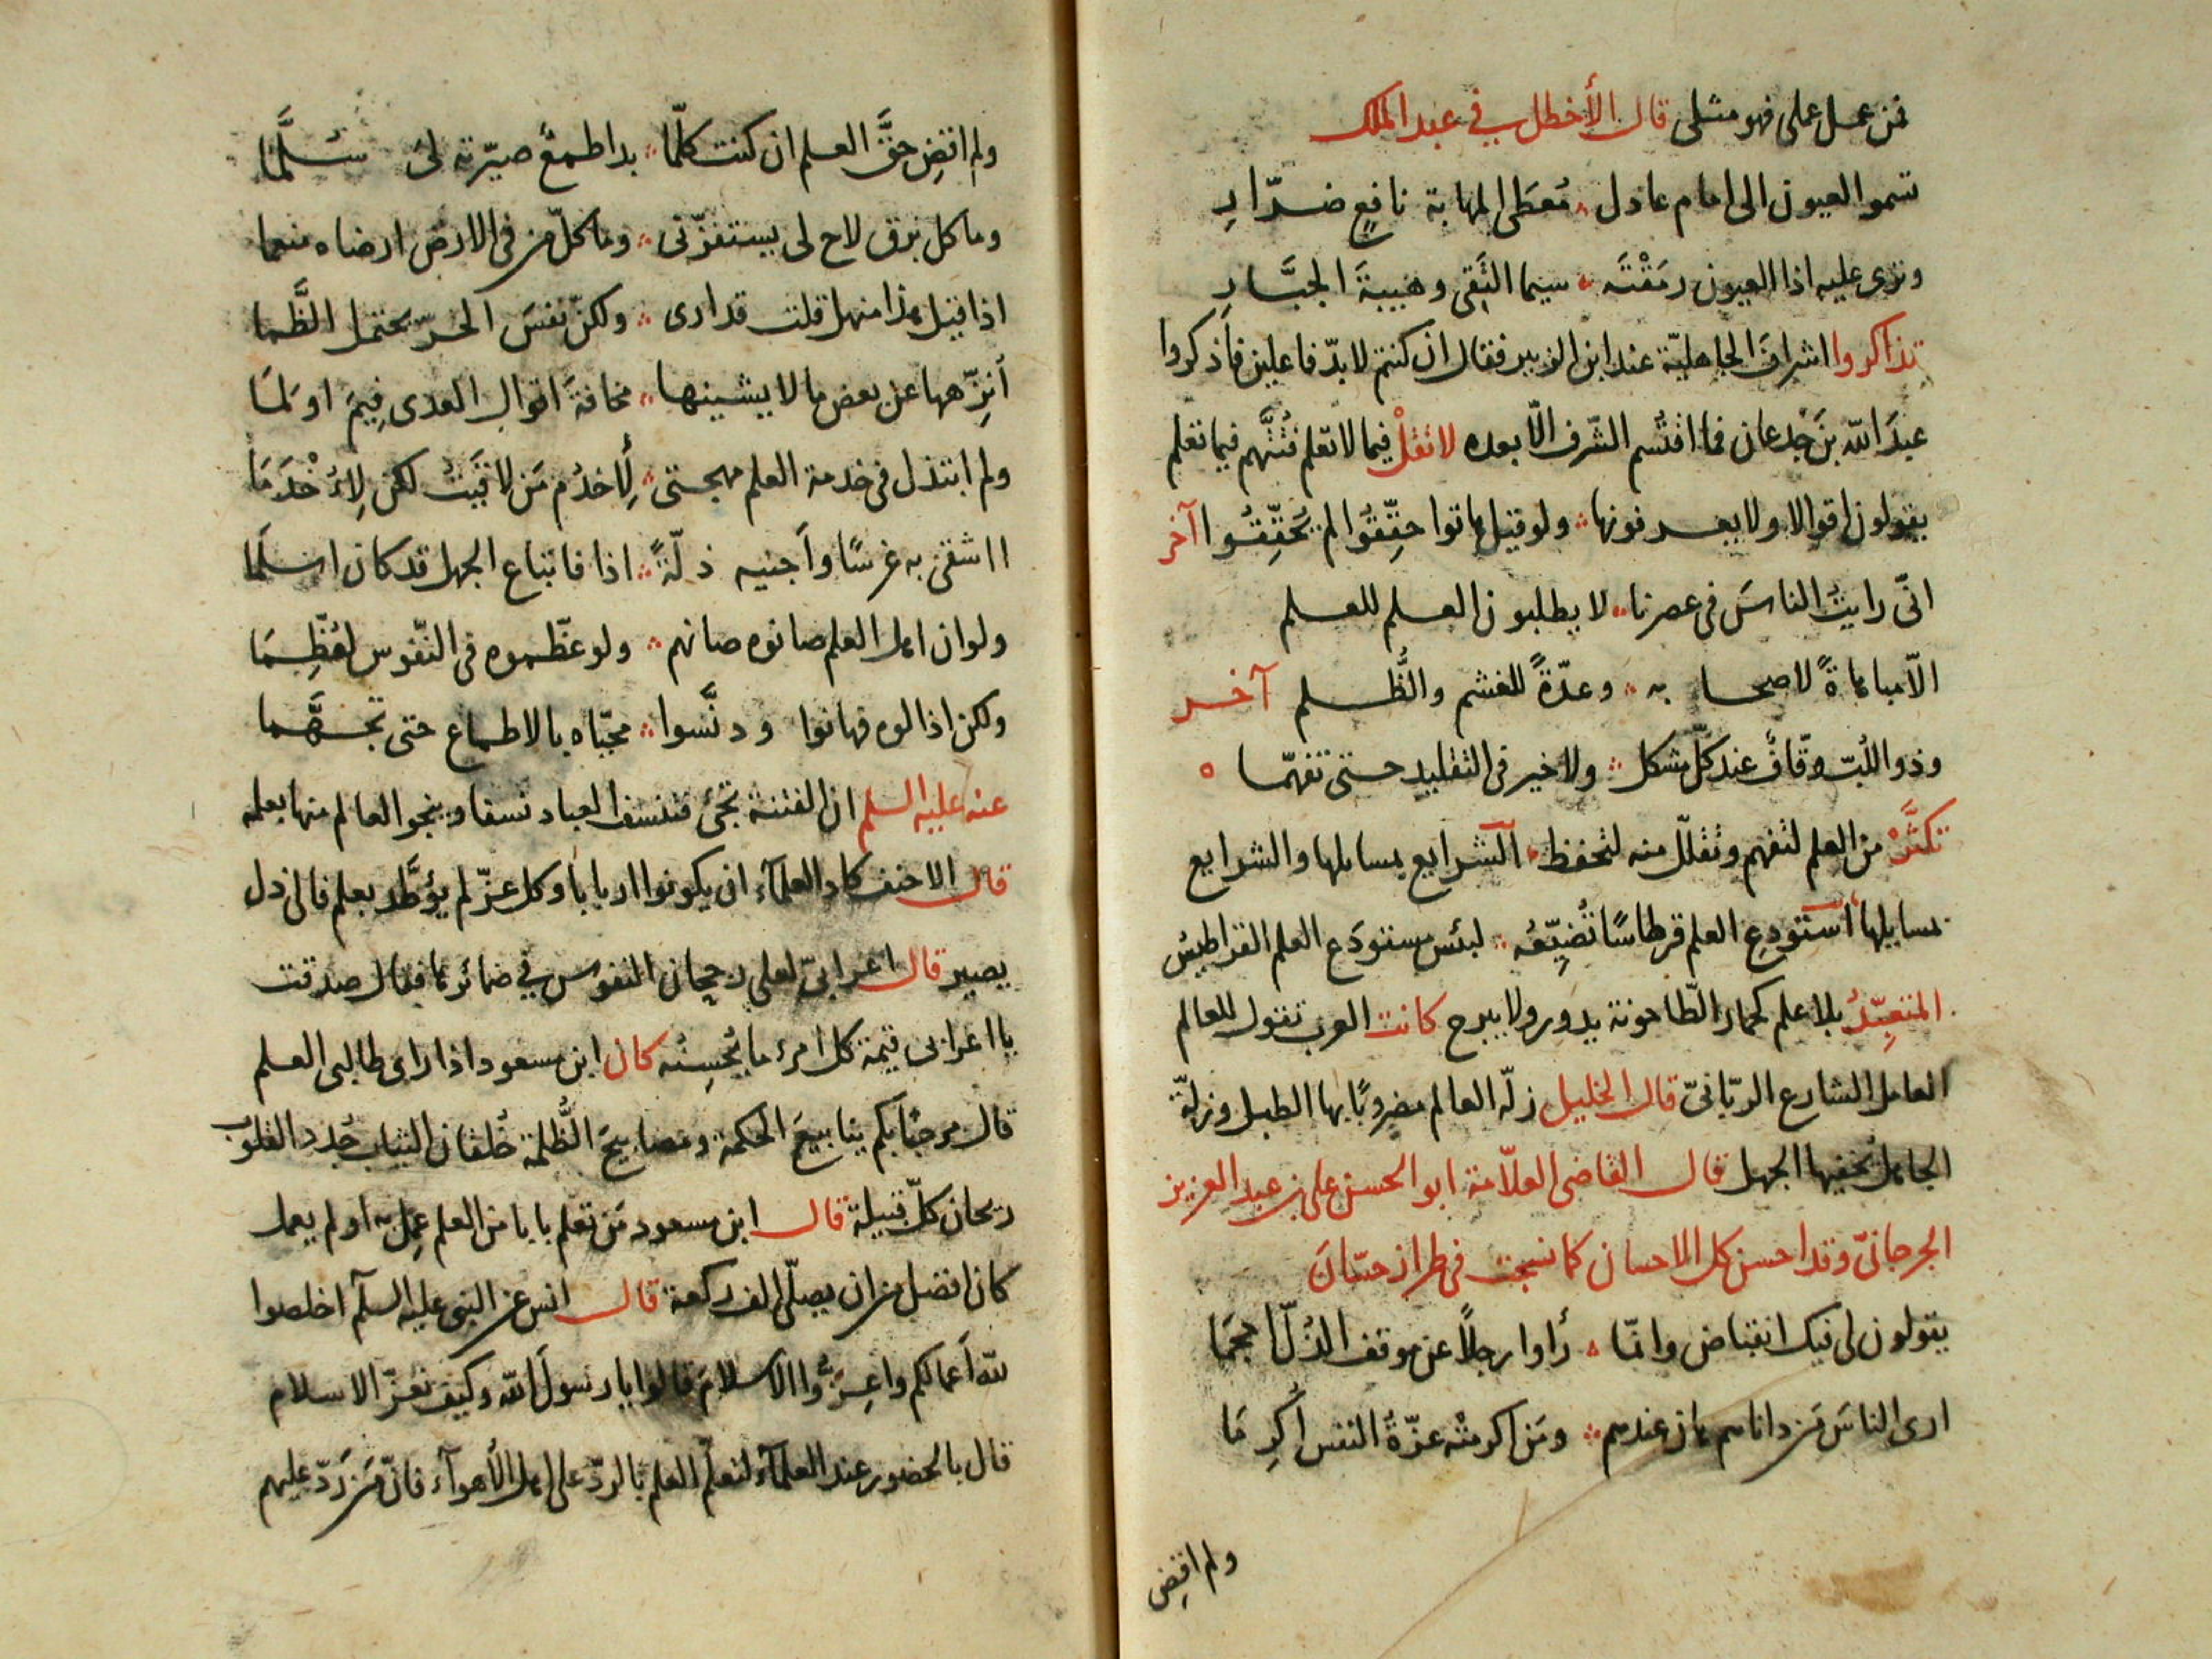 فمن عمل عملى فهو مثلى قال الأخطل في عبد الملك
تسموا العيون الى امام عادل ؞ مُعطَى المهابة نافعٍ ضرّارِ
وترى عليه اذا العيون رمَقْنَه ؞ سيما التُقى وهيبةَ الجبَّارِ
تذاكروا اشرافَ الجاهليّة عند ابن الزبير فقال ان كنتم لا بدّ فاعلين فاذكروا
عبدَ الله بنَ جُدعان فما اقتُسم الشّرف الّا بعده لا تقلْ فيما لا تعلم فتُتَّهم فيما تعلم
يقولون اقوالا ولا يعرفونها ؞ ولو قيل هاتوا حقِّقُوا لم يُحقِّقُوا آخر
انّى رايتُ الناسَ فى عصرنا ؞ لا يطلبون العلم للعلم
الّا مباهاةً لاصحابه ؞ وعدّةً للغشم والظُّلم آخر
وذو اللُبّ وقّافٌ عند كلّ مشكل ؞ ولا خير فى التقليد حتى تفهّما ه
تكثَّرْ من العلم لتفهم وتقلّل منه لتحفظ ؞ الشرايع بمسايلها والشرايع
بمسايلها استودع العلم قرطاسًا تُضيِّعُه ؞ لبئس مستودَع العلم القراطيسُ
المتعبِّدُ بلا علم كحمار الطّاحونة يدور ولا يبرح كانت العرب تقول للعالم
العامل الشارع الربّانىّ قال الخليل زلّة العالم مضروبًا بها الطبل وزلّة
الجاهل يُخفيها الجهل قال القاضى العلّامة ابو الحسن على بن عبد العزيز
الجرجانىّ وقد احسن كل الاحسان كما نسجت فى طراز حسّانَ
يقولون لى فيك انقباض وانّما ؞ رأوا رجلًا عن موقف الذلّ احجما
ارى الناسَ مَن داناهم هان عندهم ؞ ومَن اكرمتْه عزّةُ النفس أُكرِمَا
ولم اقضِ
ولم اقضِ حقَّ العلم ان كنت كلّما ؞ بدا طمعٌ صيّرته لىَ سُلَّمَا
وما كل برق لاح لى يستفزّنى ؞ وما كلّ من فى الارض ارضاه منعما
اذا قيل هذا منهل قلت قد ارى ؞ ولكنّ نفسَ الحُرّ تحتمل الظَّما
أنزّهها عن بعض ما لا يشينها ؞ مخافةَ اقوال العدى فِيمَ او لمَا
ولم ابتذل فى خدمة العلم مهجتى ؞ لِأَخدُم مَن لاقَيتُ لكن لِأُخْدَمَا
ااشقى به غرسًا وأجنيه ذلّةً ؞ اذا فاتباع الجهل قد كان اسلما
ولو ان اهل العلم صانوه صانهم ؞ ولو عظّموه فى النّفوس لعُظِّمَا
ولكن اذالوه فهانوا ودنَّسوا ؞ محيّاه بالاطماع حتى تجهَّما
عنه عليه السلم ان الفتنة تجئ فتنسف العباد نسفا وينجو العالم منها بعلمه
قال الاحنف كاد العلماء ان يكونوا اربابا وكل عزّ لم يؤطَّد بعلم فالى ذل
يصير قال اعرابىّ لعلى رجحان النفوس في ضمائرها فقال صدقت
يا اعرابى قيمة كل امرء ما يُحسِنُه كان ابن مسعود اذا راى طالبى العلم
قال مرحبًا بكم ينابيعَ الحكمة ومصابيحَ الظُّلمة خُلقان الثياب جُدد القلوب
ريحان كلّ قبيلة قال ابن مسعود مَن تعلم بابا من العلم عمل به او لم يعمل
كان افضل من ان يصلّى الف ركعة قال انس عن النبى عليه السلم اخلصوا
لله أعمالكم واعِزُّوا الاسلامَ قالوا يا رسولَ الله وكيف نعزّ الاسلام
قال بالحضور عند العلماء لتعلّم العلم بالردّ على اهل الأهواء فانّ مَن رَدّ عليهم